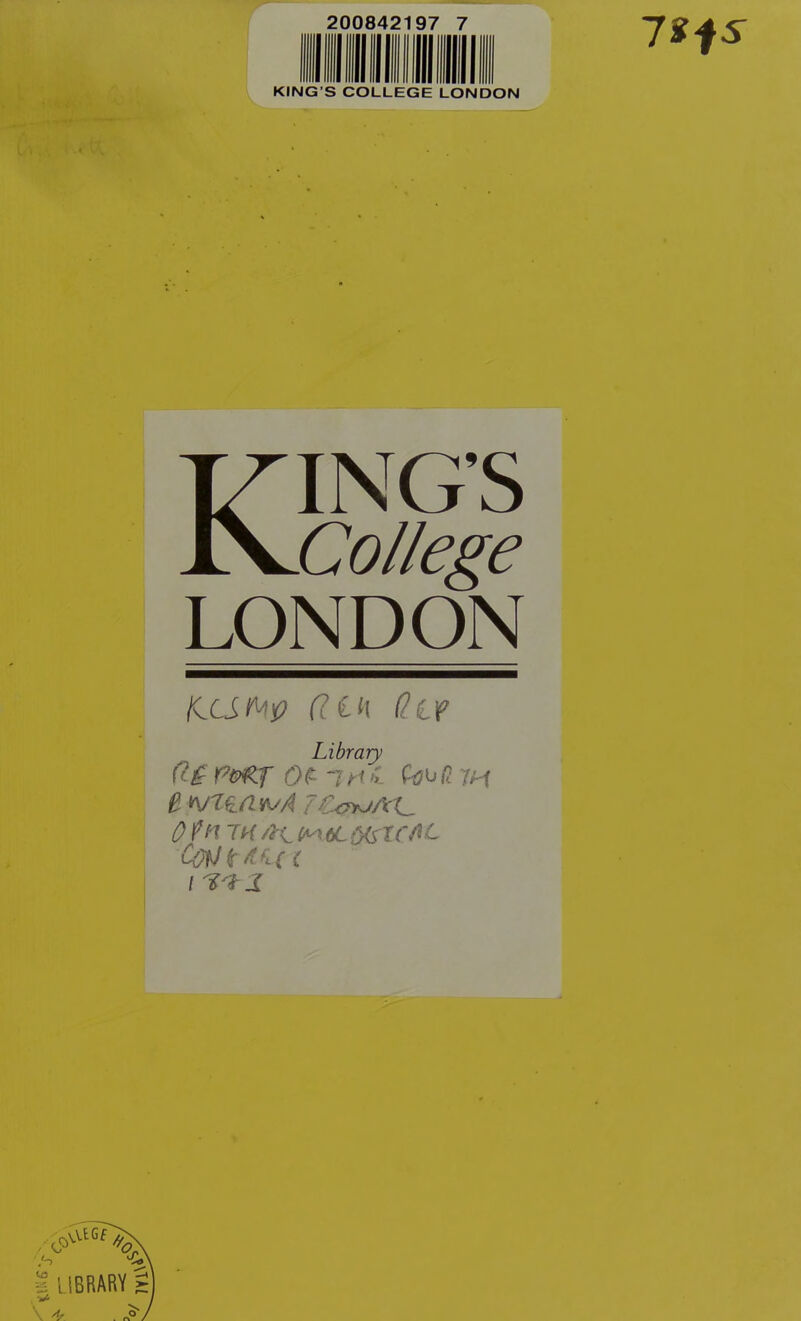 200842197 7
7845
KING'S COLLEGE LONDON
KING'S
College
LONDON
KCSMD REH REP
Library
REPORT OF THE FOURTH
INTERNATIONAL
OPHTHALMOLOGICAL
CONGRESS
COLLEGE HOSPITAL
LIBRARY